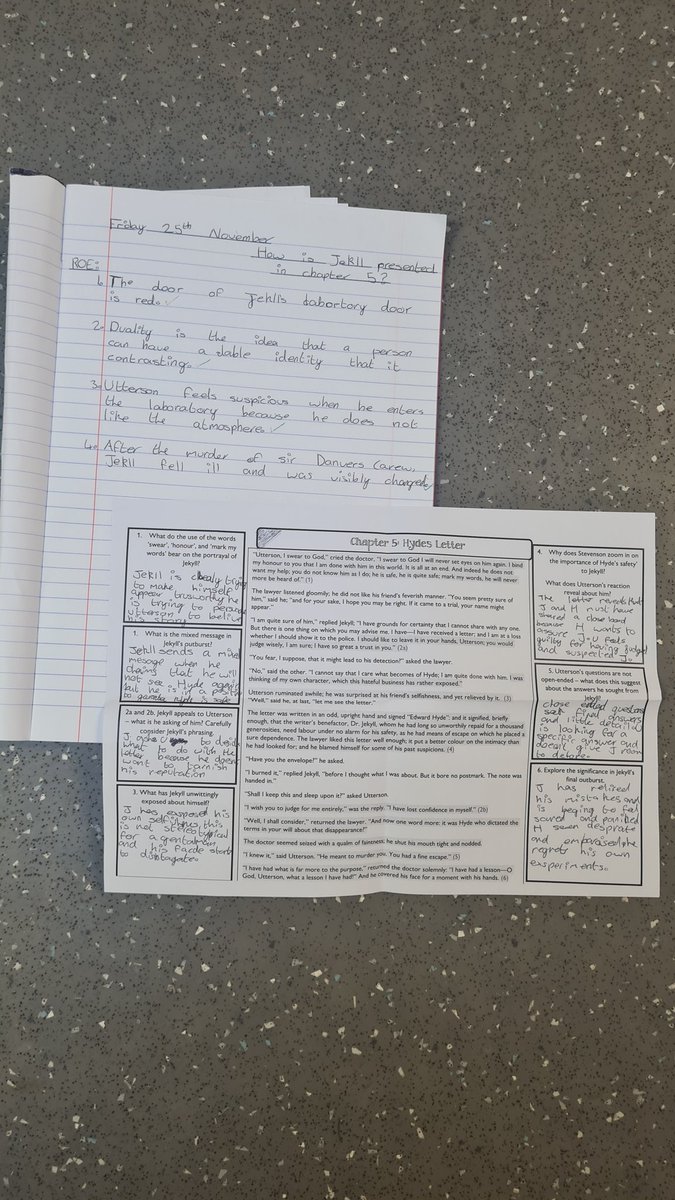 Friday 25th November
How is Jekll presented
in chapter 5?
ROE:
1. The door of Jehll's labortory door
is red.
2. Duality is the idea that a person
can have a dable identity that it
contrasting.
3. Utterson feels suspicious when he enters
the laboratory because he does not
like the atmosphere.
4. After the murder of sir Danvers Carew,
Jekll fell ill and was visibly changed.
1. What do the use of the words
'swear', 'honour', and 'mark my
words' bear on the portrayal of
Jekyll?
Jekll is clealy trying
to make himself
appear trustworthy he
is trying to
Utterson to
1. What is the mixed message in
Jekyll's outburst?
Jehll sends a
message when he
claims that he will
not see Hyde again
but he is in a
to
2a and 2b. Jekyll appeals to Utterson
– what is he asking of him? Carefully
consider Jekyll's phrasing.
J U to
what to do with the
letter because he doesn
want to tarnish
his reputation
3. What has Jekyll unwittingly
exposed about himself?
J has exposed his
own this
is not stereotypical
for a gentalman
and his facde start
to
Chapter 5: Hydes Letter
"Utterson, I swear to God," cried the doctor, "I swear to God I will never set eyes on him again. I bind
my honour to you that I am done with him in this world. It is all at an end. And indeed he does not
want my help; you do not know him as I do; he is safe, he is quite safe; mark my words, he will never
more be heard of." (1)
The lawyer listened gloomily; he did not like his friend's feverish manner. "You seem pretty sure of
him," said he; "and for your sake, I hope you may be right. If it came to a trial, your name might
appear."
"I am quite sure of him," replied Jekyll; "I have grounds for certainty that I cannot share with any one.
But there is one thing on which you may advise me. I have—I have received a letter; and I am at a loss
whether I should show it to the police. I should like to leave it in your hands, Utterson; you would
judge wisely, I am sure; I have so great a trust in you." (2a)
"You fear, I suppose, that it might lead to his detection?" asked the lawyer.
"No," said the other. "I cannot say that I care what becomes of Hyde; I am quite done with him. I was
thinking of my own character, which this hateful business has rather exposed."
Utterson ruminated awhile; he was surprised at his friend's selfishness, and yet relieved by it. (3)
"Well," said he, at last, "let me see the letter."
The letter was written in an odd, upright hand and signed "Edward Hyde": and it signified, briefly
enough, that the writer's benefactor, Dr. Jekyll, whom he had long so unworthily repaid for a thousand
generosities, need labour under no alarm for his safety, as he had means of escape on which he placed a
sure dependence. The lawyer liked this letter well enough; it put a better colour on the intimacy than
he had looked for; and he blamed himself for some of his past suspicions. (4)
"Have you the envelope?" he asked.
"I burned it," replied Jekyll, "before I thought what I was about. But it bore no postmark. The note was
handed in."
"Shall I keep this and sleep upon it?" asked Utterson.
"I wish you to judge for me entirely," was the reply. "I have lost confidence in myself." (2b)
"Well, I shall consider," returned the lawyer. "And now one word more: it was Hyde who dictated the
terms in your will about that disappearance?"
The doctor seemed seized with a qualm of faintness; he shut his mouth tight and nodded.
"I knew it," said Utterson. "He meant to murder you. You had a fine escape." (5)
"I have had what is far more to the purpose," returned the doctor solemnly: "I have had a lesson—O
God, Utterson, what a lesson I have had!" And he covered his face for a moment with his hands. (6)
4. Why does Stevenson zoom in on
the importance of Hyde's safety'
to Jekyll?
What does Utterson's reaction
reveal about him?
The letter reveals that
J and H must have
shared a close bond
because H wants to
assure J. U feels
guilty for having judged
and suspected J.
5. Utterson's questions are not
open-ended – what does this suggest
about the answers he sought from
Jekyll?
close ended questions
final answers
and little detail U
is looking for a
specific answer and
doesn't give J room
to
6. Explore the significance in Jekyll's
final outburst.
J has
his mistakes and
is beging to feel
scared and panicked
H seem desprate
and
regrets his own
exsperiments.